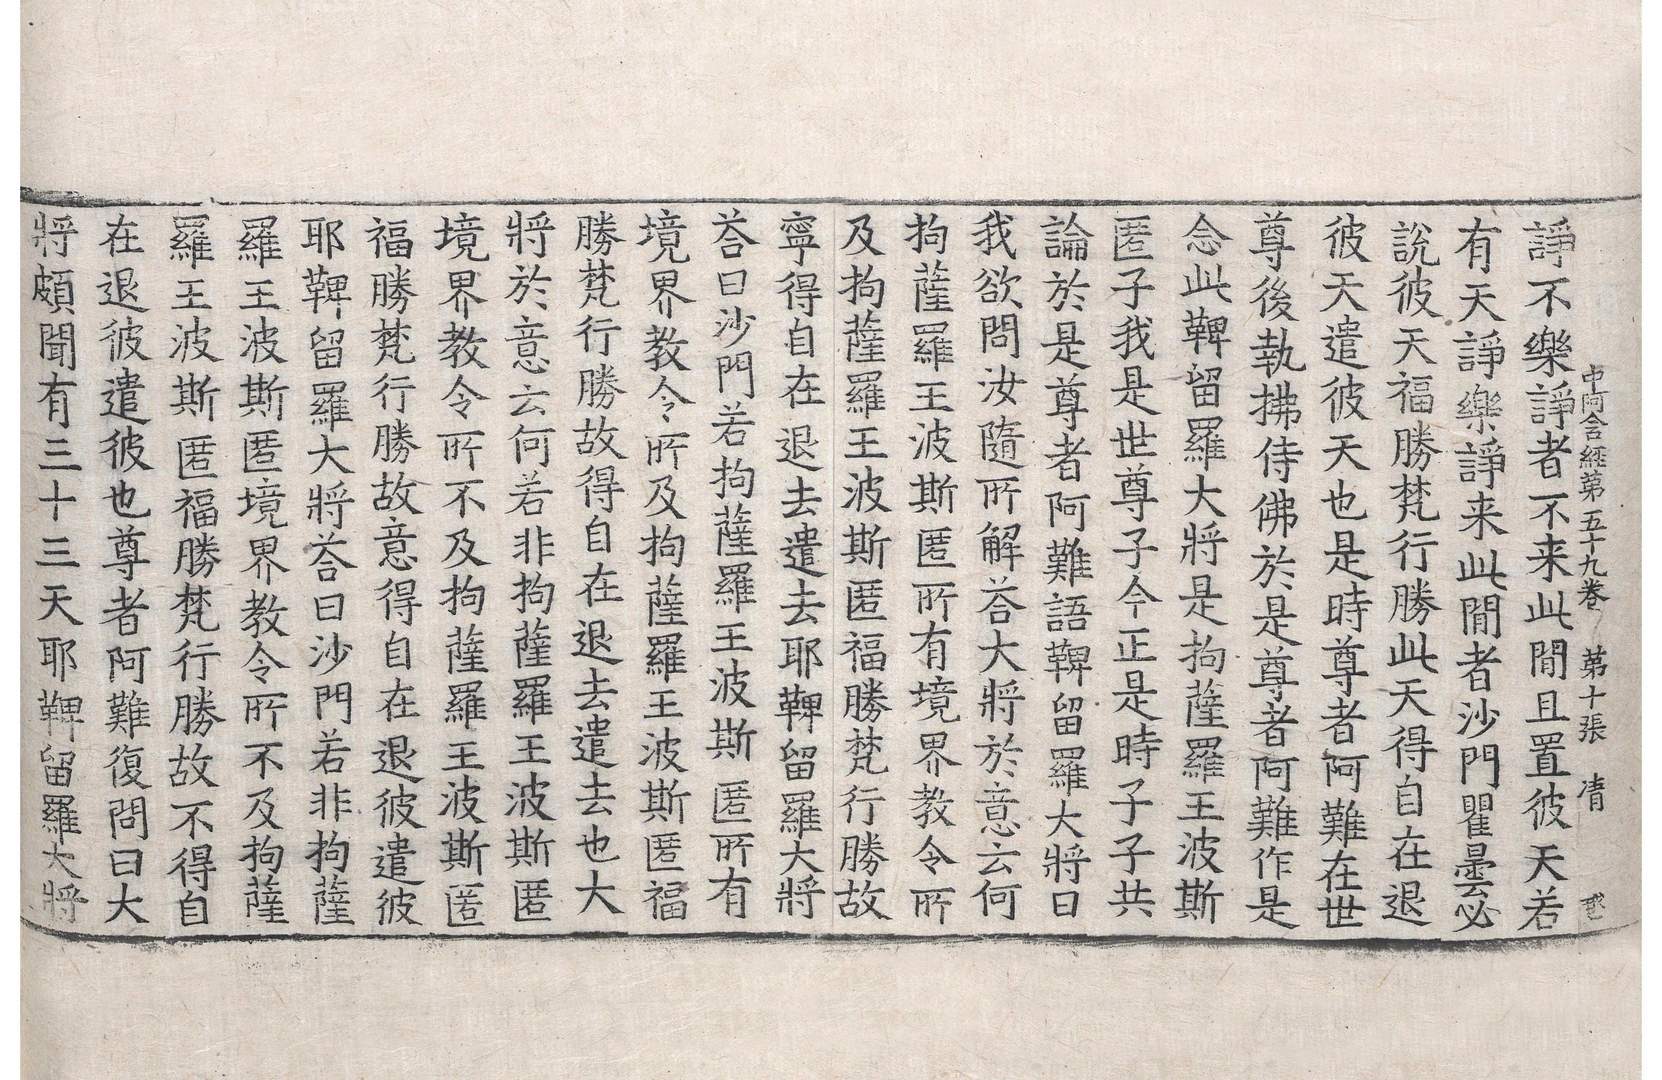 中阿含經第五十九卷 第十張 清
諍不樂諍者不来此間且置彼天若
有天諍樂諍来此間者沙門瞿曇必
說彼天福勝梵行勝此天得自在退
彼天遣彼天也是時尊者阿難在世
尊後執拂侍佛於是尊者阿難作是
念此鞞留羅大將是拘薩羅王波斯
匿子我是世尊子今正是時子子共
論於是尊者阿難語鞞留羅大將曰
我欲問汝隨所解荅大將於意云何
拘薩羅王波斯匿所有境界教令所
及拘薩羅王波斯匿福勝梵行勝故
寧得自在退去遣去耶鞞留羅大將
荅曰沙門若拘薩羅王波斯匿所有
境界教令所及拘薩羅王波斯匿福
勝梵行勝故得自在退去遣去也大
將於意云何若非拘薩羅王波斯匿
境界教令所不及拘薩羅王波斯匿
福勝梵行勝故意得自在退彼遣彼
耶鞞留羅大將荅曰沙門若非拘薩
羅王波斯匿境界教令所不及拘薩
羅王波斯匿福勝梵行勝故不得自
在退彼遣彼也尊者阿難復問曰大
將頗聞有三十三天耶鞞留羅大將